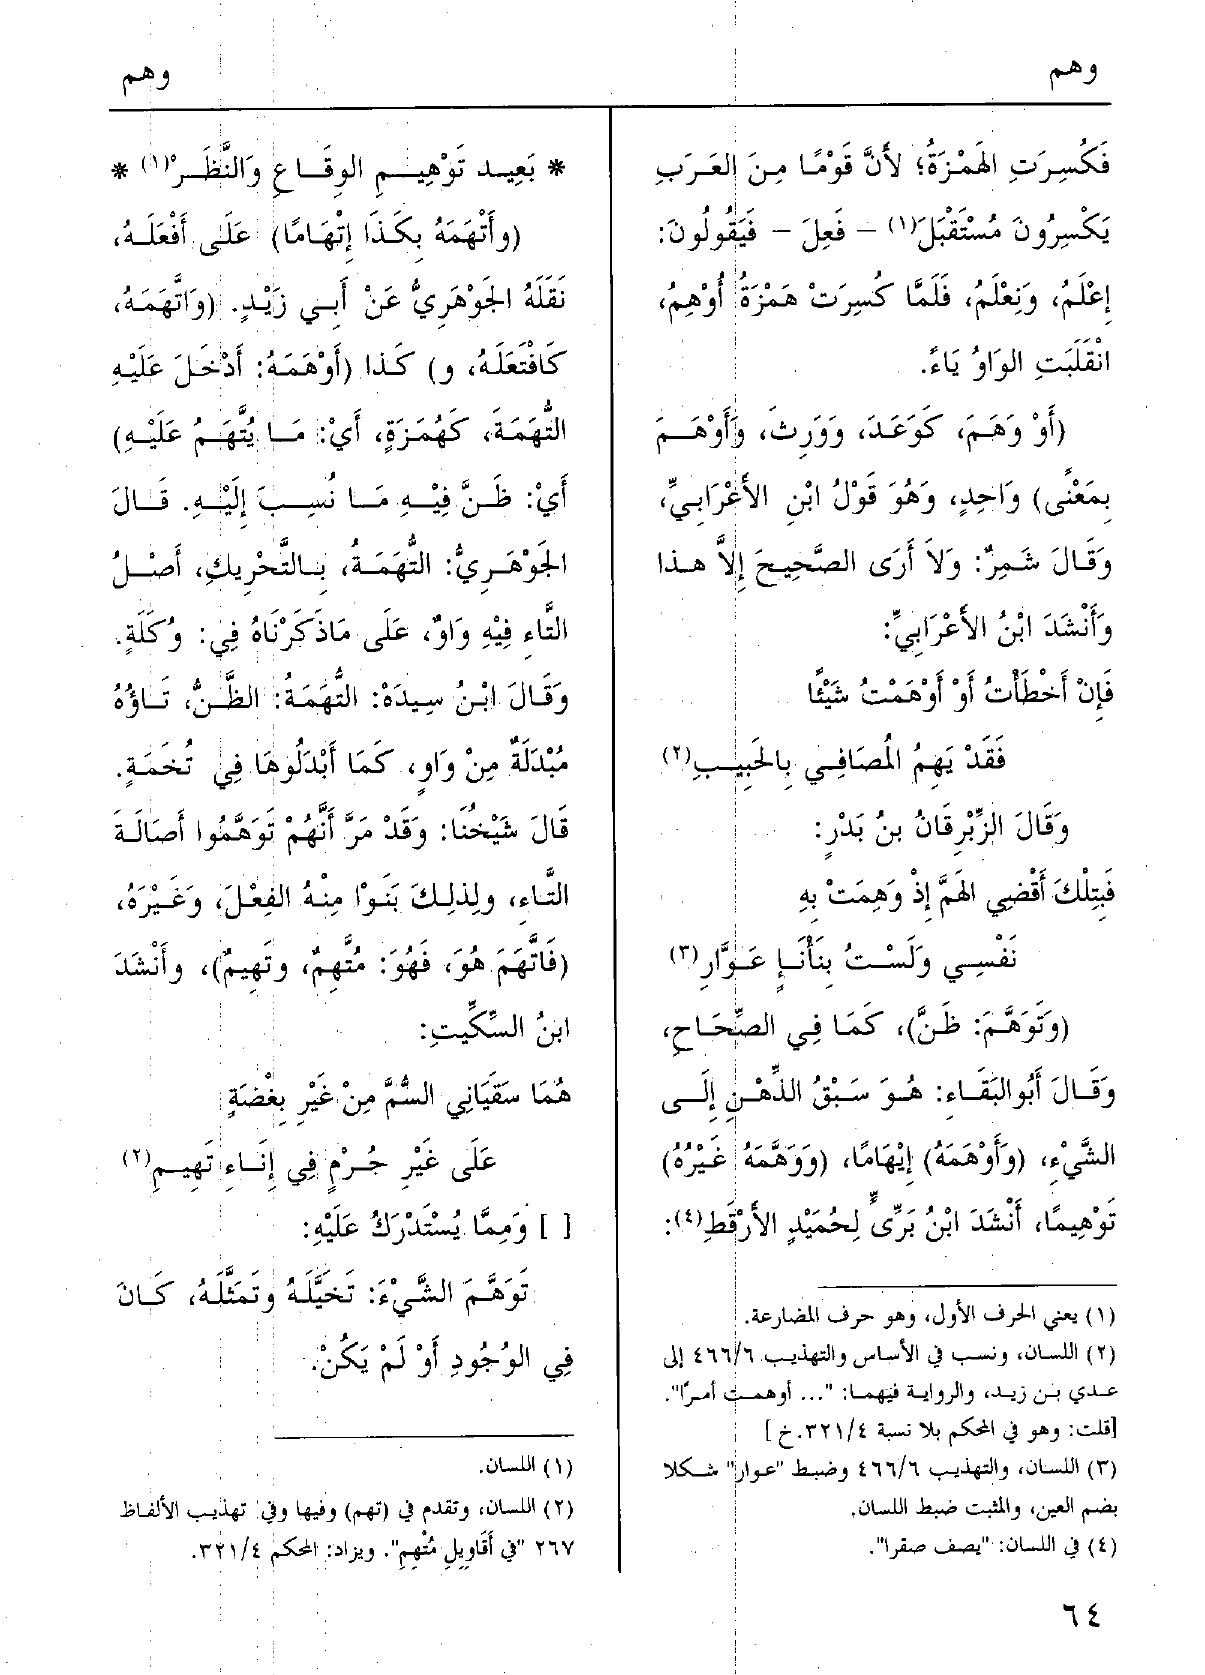 وهم
وهم
فَكُسِرَتِ الهَمْزَةُ؛ لأَنَّ قَوْمًا مِنَ العَرَبِ
يَكْسِرُونَ مُسْتَقْبَلَ(١) - فَعِلَ - فَيَقُولُونَ:
إِعْلَمُ، وَنِعْلَمُ، فَلَمَّا كُسِرَتْ هَمْزَةُ أُوْهِمُ،
انْقَلَبَتِ الوَاوُ يَاءً.
(أَوْ وَهَمَ، كَوَعَدَ، وَوَرِثَ، وَأَوْهَمَ
بِمَعْنًى) وَاحِدٍ، وَهُوَ قَوْلُ ابْنِ الأَعْرَابِيِّ،
وَقَالَ شَمِرٌ: وَلاَ أَرَى الصَّحِيحَ إِلاَّ هذا
وَأَنْشَدَ ابْنُ الأَعْرَابِيِّ:
فَإِنْ أَخْطَأْتُ أَوْ أَوْهَمْتُ شَيْئًا
فَقَدْ يَهِمُ المُصَافِي بِالحَبِيبِ(٢)
وَقَالَ الزِّبْرِقَانُ بنُ بَدْرٍ:
فَبِتِلْكَ أَقْضِي الهَمَّ إِذْ وَهِمَتْ بِهِ
نَفْسِي وَلَسْتُ بِنَأْنَإٍ عَوَّارِ(٣)
(وَتَوَهَّمَ: ظَنَّ)، كَمَا فِي الصِّحَاحِ،
وَقَالَ أَبُو البَقَاءِ: هُوَ سَبْقُ الذِّهْنِ إِلَى
الشَّيْءِ، (وَأَوْهَمَهُ) إِيْهَامًا، (وَوَهَّمَهُ غَيْرُهُ)
تَوْهِيمًا، أَنْشَدَ ابْنُ بَرِّىٍّ لِحُمَيْدٍ الأَرْقَطِ(٤):
(١) يعني الحرف الأول، وهو حرف المضارعة.
(٢) اللسان، ونسب في الأساس والتهذيب ٤٦٦/٦ إلى
عدي بن زيد، والرواية فيهما: "... أوهمت أمرًا".
[قلت: وهو في المحكم بلا نسبة ٣٢١/٤.خ]
(٣) اللسان، والتهذيب ٤٦٦/٦ وضبط "عوار" شكلا
بضم العين، والمثبت ضبط اللسان.
(٤) في اللسان: "يصف صقرا".
* بَعِيد تَوْهِيمِ الوِقَاعِ وَالنَّظَرْ(١) *
(وأَتْهَمَهُ بِكَذَا إِتْهَامًا) عَلَى أَفْعَلَهُ،
نَقَلَهُ الجَوْهَرِيُّ عَنْ أَبِي زَيْدٍ. (وَاتَّهَمَهُ،
كَافْتَعَلَهُ، و) كَذا (أَوْهَمَهُ: أَدْخَلَ عَلَيْهِ
التُّهَمَةَ، كَهُمَزَةٍ، أَيْ: مَا يُتَّهَمُ عَلَيْهِ)
أَيْ: ظَنَّ فِيْهِ مَا نُسِبَ إِلَيْهِ. قَالَ
الجَوْهَرِيُّ: التُّهَمَةُ، بِالتَّحْرِيكِ، أَصْلُ
التَّاءِ فِيْهِ وَاوٌ، عَلَى مَاذَكَرْنَاهُ فِي: وُكَلَةٍ.
وَقَالَ ابْنُ سِيدَهْ: التُّهَمَةُ: الظَّنُّ، تَاؤُهُ
مُبْدَلَةٌ مِنْ وَاوٍ، كَمَا أَبْدَلُوهَا فِي تُخَمَةٍ.
قَالَ شَيْخُنَا: وَقَدْ مَرَّ أَنَّهُمْ تَوَهَّمُوا أَصَالَةَ
التَّاءِ، ولِذلِكَ بَنَوْا مِنْهُ الفِعْلَ، وَغَيْرَهُ،
(فَاتَّهَمَ هُوَ، فَهُوَ: مُتَّهِمٌ، وتَهِيمٌ)، وأَنْشَدَ
ابنُ السِّكِّيتِ:
هُمَا سَقَيَانِي السُّمَّ مِنْ غَيْرِ بِغْضَةٍ
عَلَى غَيْرِ جُرْمٍ فِي إِنَاءِ تَهِيمِ(٢)
[ ] وَمِمَّا يُسْتَدْرَكُ عَلَيْهِ:
تَوَهَّمَ الشَّيْءَ: تَخَيَّلَهُ وتَمَثَّلَهُ، كَانَ
فِي الوُجُودِ أَوْ لَمْ يَكُنْ.
(١) اللسان.
(٢) اللسان، وتقدم في (تهم) وفيها وفي تهذيب الألفاظ
٢٦٧ "في أَقَاوِيلِ مُتْهِمِ". ويزاد: المحكم ٣٢١/٤.
٦٤